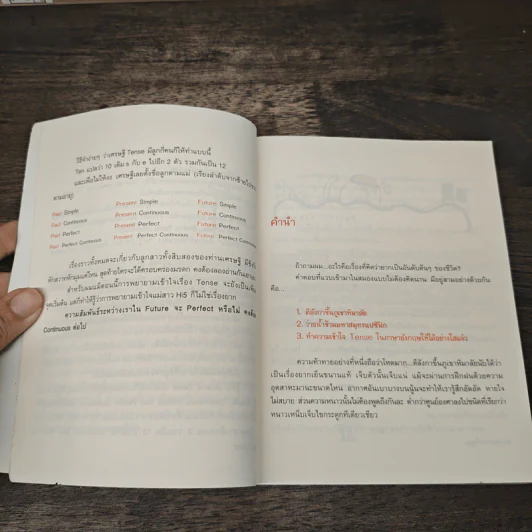 วิธีจำง่ายๆ ว่าเศรษฐี Tense มีลูกกี่คนก็ให้ทำแบบนี้
Ten แปลว่า 10 เติม s กับ e ไปอีก 2 ตัว รวมกันเป็น 12
และเพื่อไม่ให้งง เศรษฐีเลยตั้งชื่อลูกตามแม่ (เรียงลำดับจากซ้ายไปขวา
ตามอายุ)
Past Simple Present Simple Future Simple
Past Continuous Present Continuous Future Continuous
Past Perfect Present Perfect Future Perfect
Past Perfect Continuous Present Perfect Continuous Future Perfect Continuous
เรื่องราวทั้งหมดจะเกี่ยวกับลูกสาวทั้งสิบสองของท่านเศรษฐี
สุดท้ายใครจะได้ครอบครองมรดก คงต้องลองอ่านกัน
สำหรับผมแม้ตอนนี้การพยายามเข้าใจเรื่อง Tense จะยังเป็น
จุดเริ่มต้น แต่ก็ทำให้รู้ว่าการพยายามเข้าใจแม่สาว Hi5 ก็ไม่ใช่เรื่องยาก
ความสัมพันธ์ระหว่างเราใน Future จะ Perfect หรือไม่ คงต้อง
Continuous ต่อไป
คำนำ
ถ้าถามผม...อะไรคือเรื่องที่คิดว่ายากเป็นอันดับต้นๆ ของชีวิต?
คำตอบที่แวบเข้ามาในสมองแบบไม่ต้องคิดนาน มีอยู่สามอย่างด้วยกัน
คือ...
1. ตีลังกาขึ้นภูเขาหิมาลัย
2. ว่ายน้ำข้ามมหาสมุทรแปซิฟิก
3. ทำความเข้าใจ Tense ในภาษาอังกฤษให้ได้อย่างใสแจ๋ว
ความท้าทายอย่างที่หนึ่งถือว่าโหดมาก...ตีลังกาขึ้นภูเขาหิมาลัยนับได้ว่า
เป็นเรื่องยากเย็นขนานแท้ เจ็บตัวนั้นเจ็บแน่ แม้จะผ่านการฝึกฝนด้วยความ
อุตสาหะมานะขนาดไหน อากาศอันเบาบางบนนู้นจะทำให้เรารู้สึกอึดอัด หายใจ
ไม่สบาย ส่วนความหนาวนั้นไม่ต้องพูดถึงกันละ ต่ำกว่าศูนย์องศาลงไปชนิดที่เรียกว่า
หนาวเหน็บเจ็บไขกระดูกทีเดียวเชียว